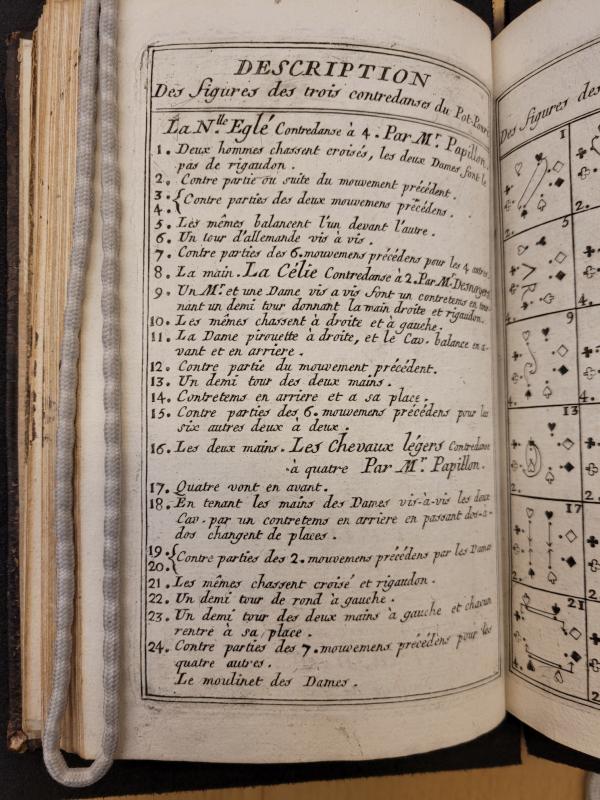 DESCRIPTION
Des figures des trois contredanses du Pot-Pouri
La N.lle Eglé Contredanse à 4. Par Mr. Papillon.
1. Deux hommes chassent croisés, les deux Dames font le
pas de rigaudon.
2. Contre partie ou suite du mouvement précédent.
3. { Contre parties des deux mouvemens précédens.
4.
5. Les mêmes balancent l'un devant l'autre.
6. Un tour d'allemande vis à vis.
7. Contre parties des 6. mouvemens précédens pour les 4 autres.
8. La main. La Célie Contredanse à 2. Par Mr. Desnoyers
9. Un Mr. et une Dame vis a vis font un contretems en tour-
nant un demi tour donnant la main droite et rigaudon.
10. Les mêmes chassent à droite et à gauche.
11. La Dame pirouette à droite, et le Cav. balance en a-
vant et en arriere.
12. Contre partie du mouvement précédent.
13. Un demi tour des deux mains.
14. Contretems en arriere et a sa place.
15. Contre parties des 6. mouvemens précédens pour les
six autres deux à deux.
16. Les deux mains. Les Chevaux légers Contredanse
à quatre Par Mr. Papillon.
17. Quatre vont en avant.
18. En tenant les mains des Dames vis-à-vis les deux
Cav. par un contretems en arriere en passant dos-à-
dos changent de places.
19. { Contre parties des 2. mouvemens précédens par les Dames
20.
21. Les mêmes chassent croisé et rigaudon.
22. Un demi tour de rond à gauche.
23. Un demi tour des deux mains à gauche et chacun
rentre à sa place.
24. Contre parties des 7. mouvemens précédens pour les
quatre autres.
Le moulinet des Dames.
Des figures des
1
2.
5
4.
9
4.
13
2.
17
2.
21
2.